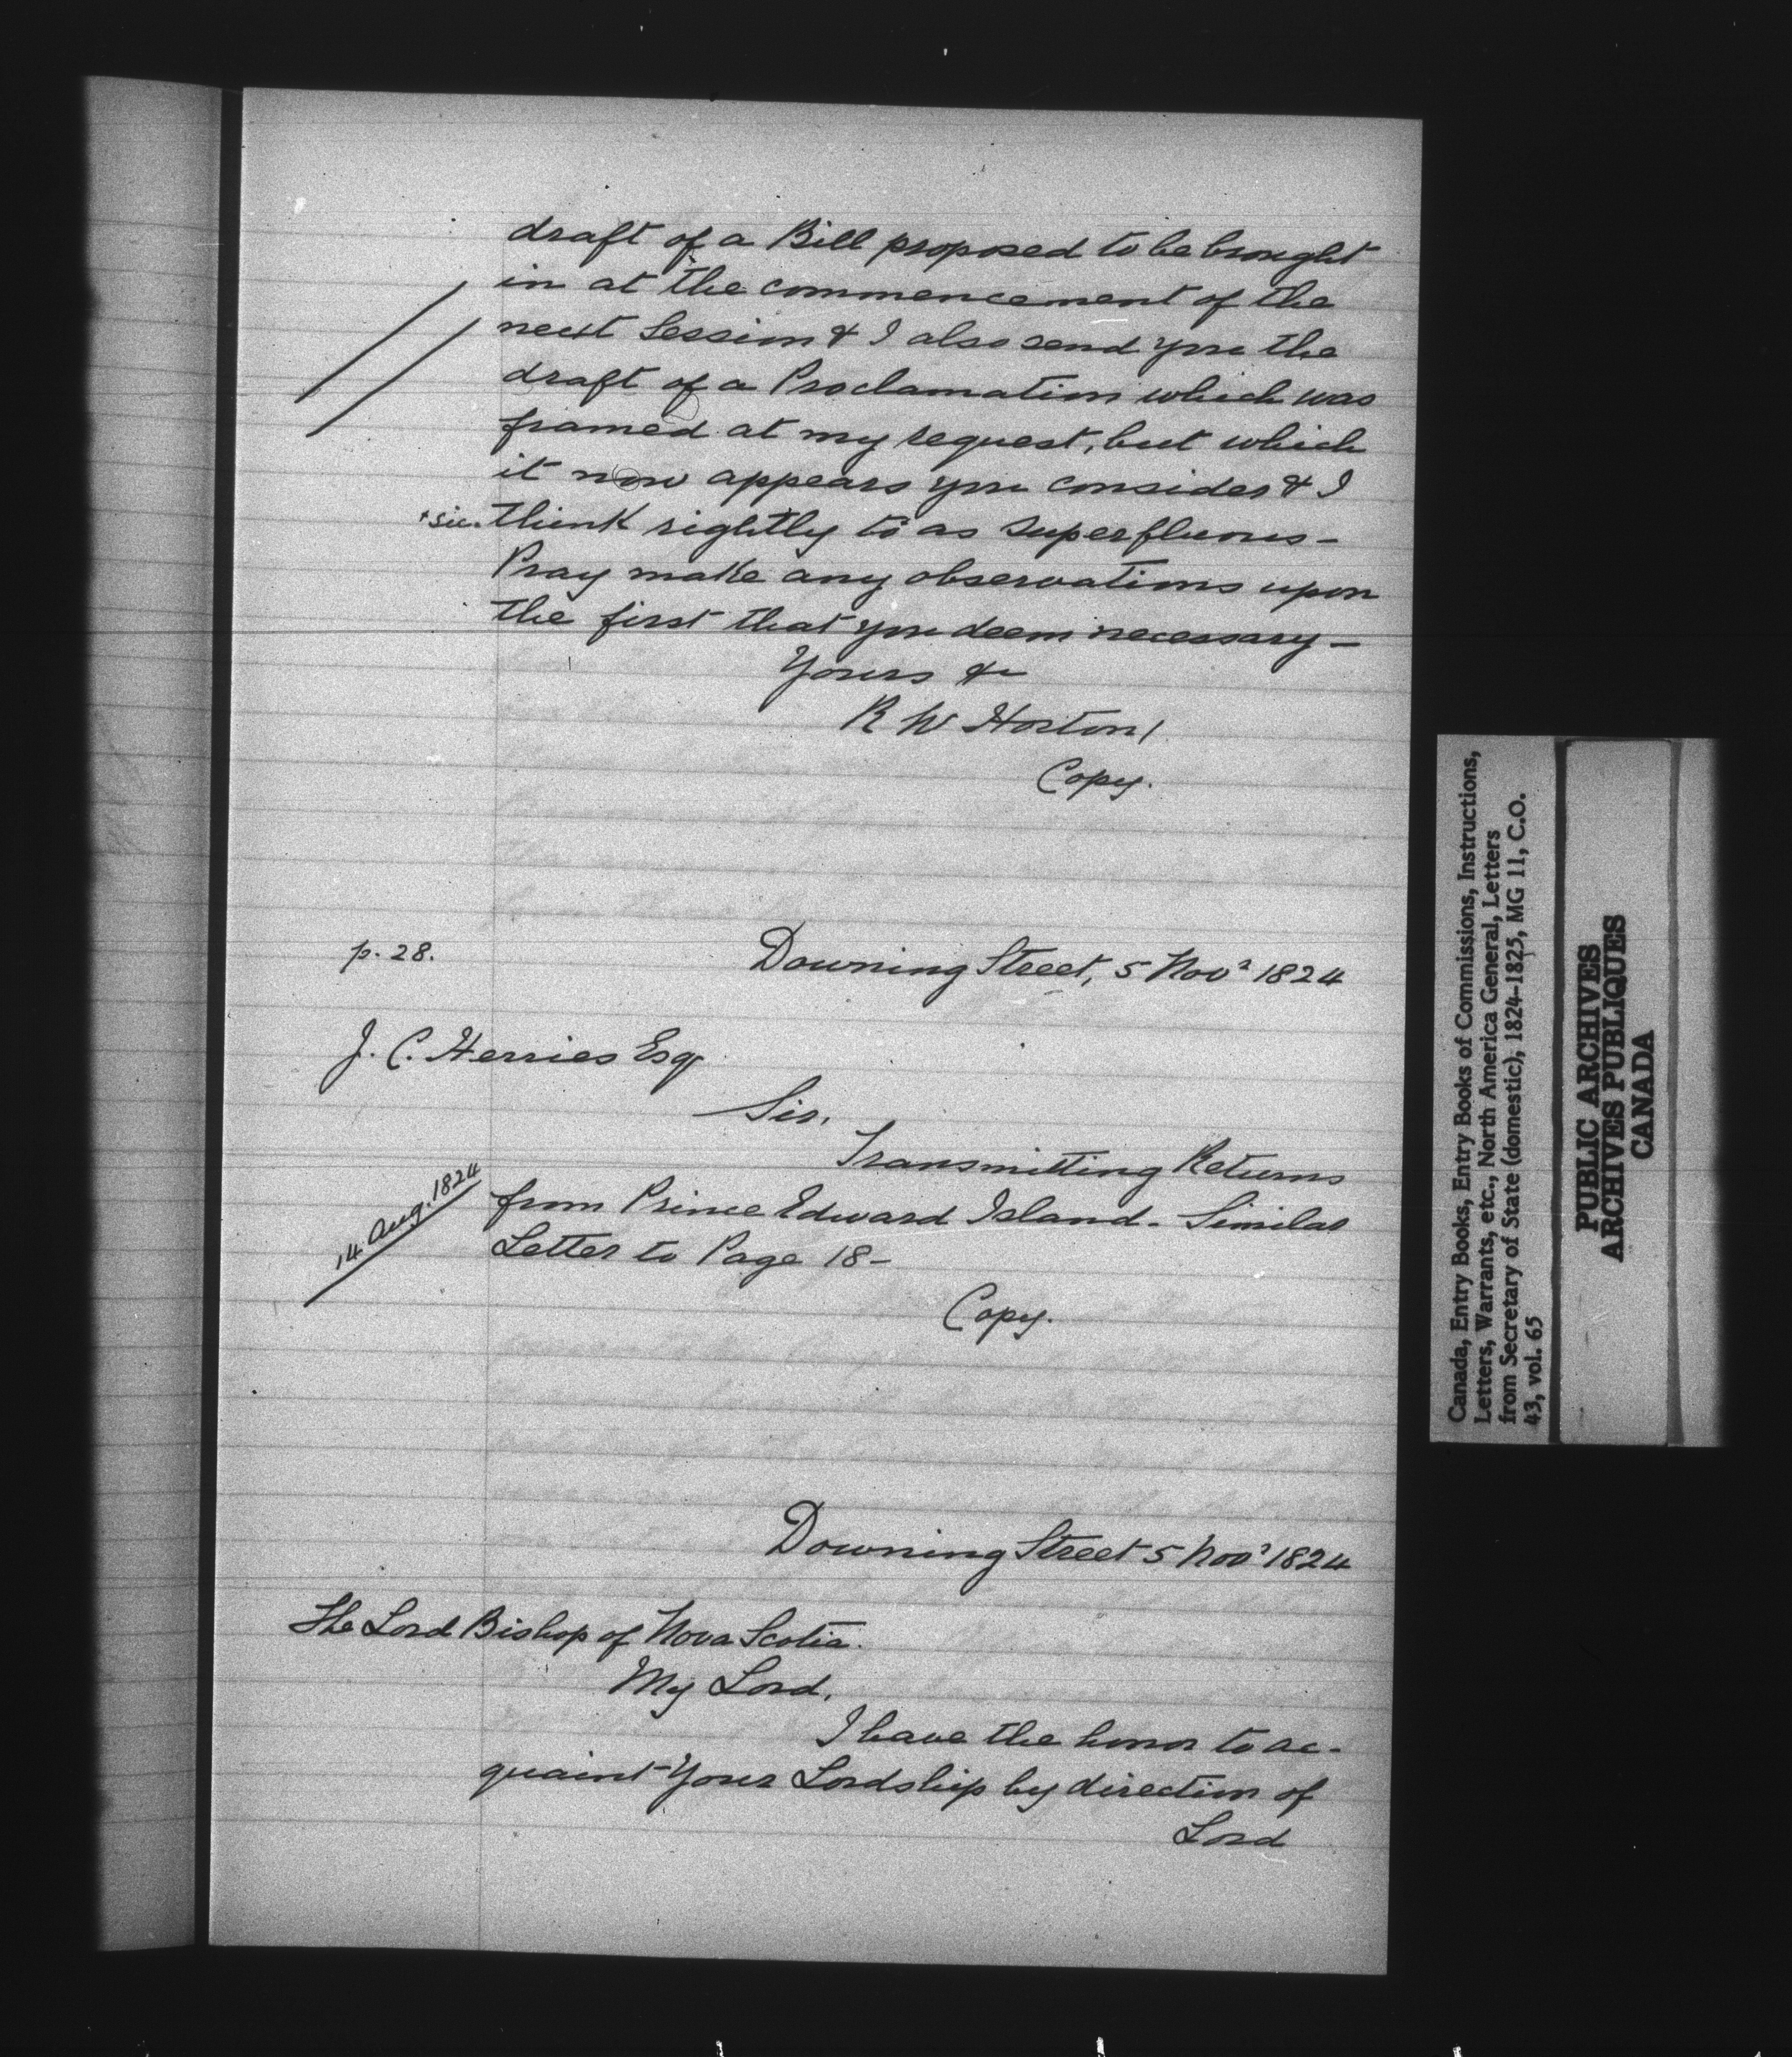 draft of a Bill proposed to be brought
in at the commencement of the
next Session & I also send you the
draft of a Proclamation which was
framed at my request, but which
it now appears you consider & I
+ sic. think rightly to as superfluous -
Pray make any observations upon
the first that you deem necessary -
Yours &c
R W Horton /
Copy.
p. 28.
Downing Street, 5 Novr 1824
J. C. Herries Esqr
Sir,
Transmitting Returns
14 Aug. 1824
from Prince Edward Island - Similar
Letter to Page 18 -
Copy.
Downing Street 5 Novr 1824
The Lord Bishop of Nova Scotia.
My Lord,
I have the honor to ac-
quaint Your Lordship by direction of
Lord
Canada, Entry Books, Entry Books of Commissions, Instructions,
Letters, Warrants, etc., North America General, Letters
from Secretary of State (domestic), 1824-1825, MG 11, C.O.
43, vol. 65
PUBLIC ARCHIVES
ARCHIVES PUBLIQUES
CANADA